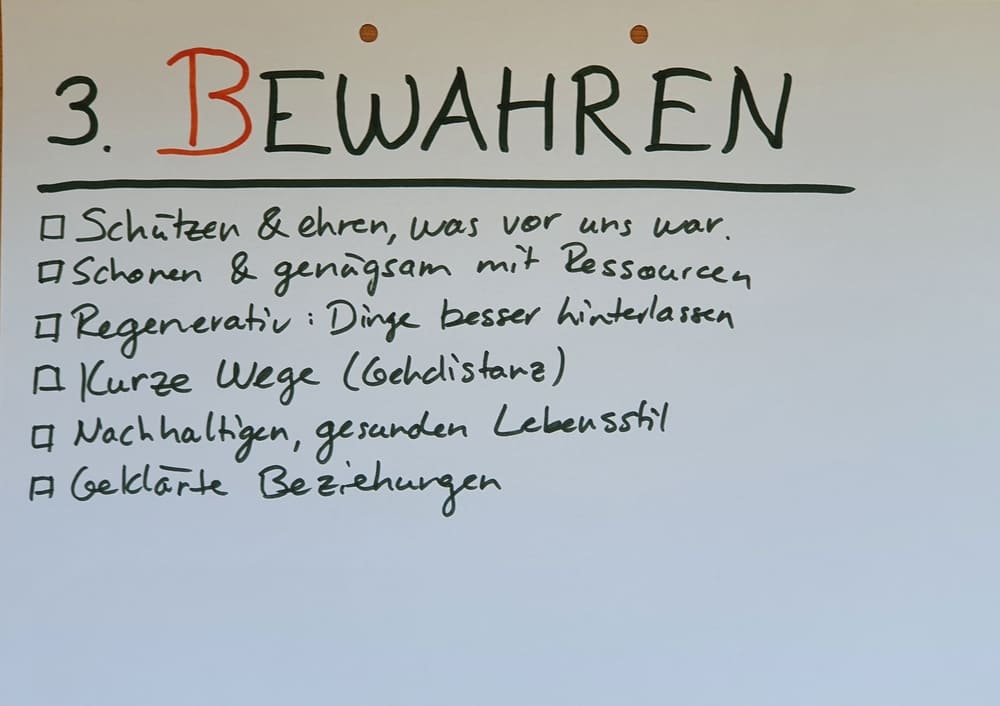 3. BEWAHREN
☐ Schützen & ehren, was vor uns war.
☐ Schonen & genügsam mit Ressourcen
☐ Regenerativ: Dinge besser hinterlassen
☐ Kurze Wege (Gehdistanz)
☐ Nachhaltigen, gesunden Lebensstil
☐ Geklärte Beziehungen